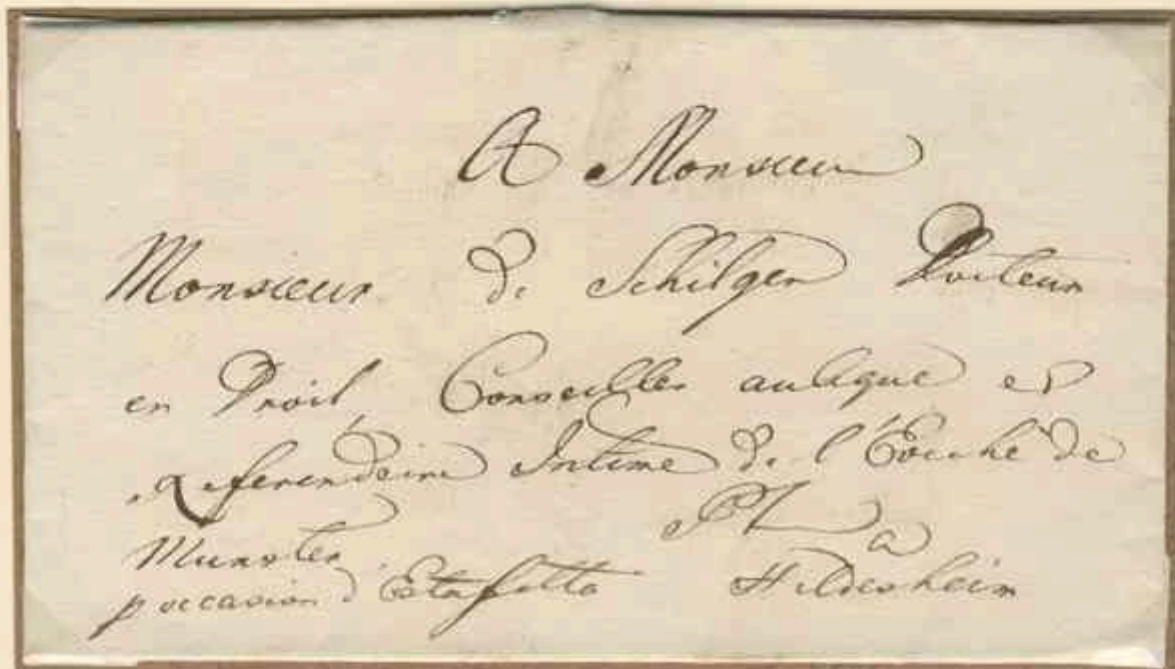 A Monsieur
Monsieur de Schilgen Docteur
en Droit, Conseiller aulique et
Referendaire Intime de l'Eveché de
Munster
p occasion d'Estafette a Hildesheim